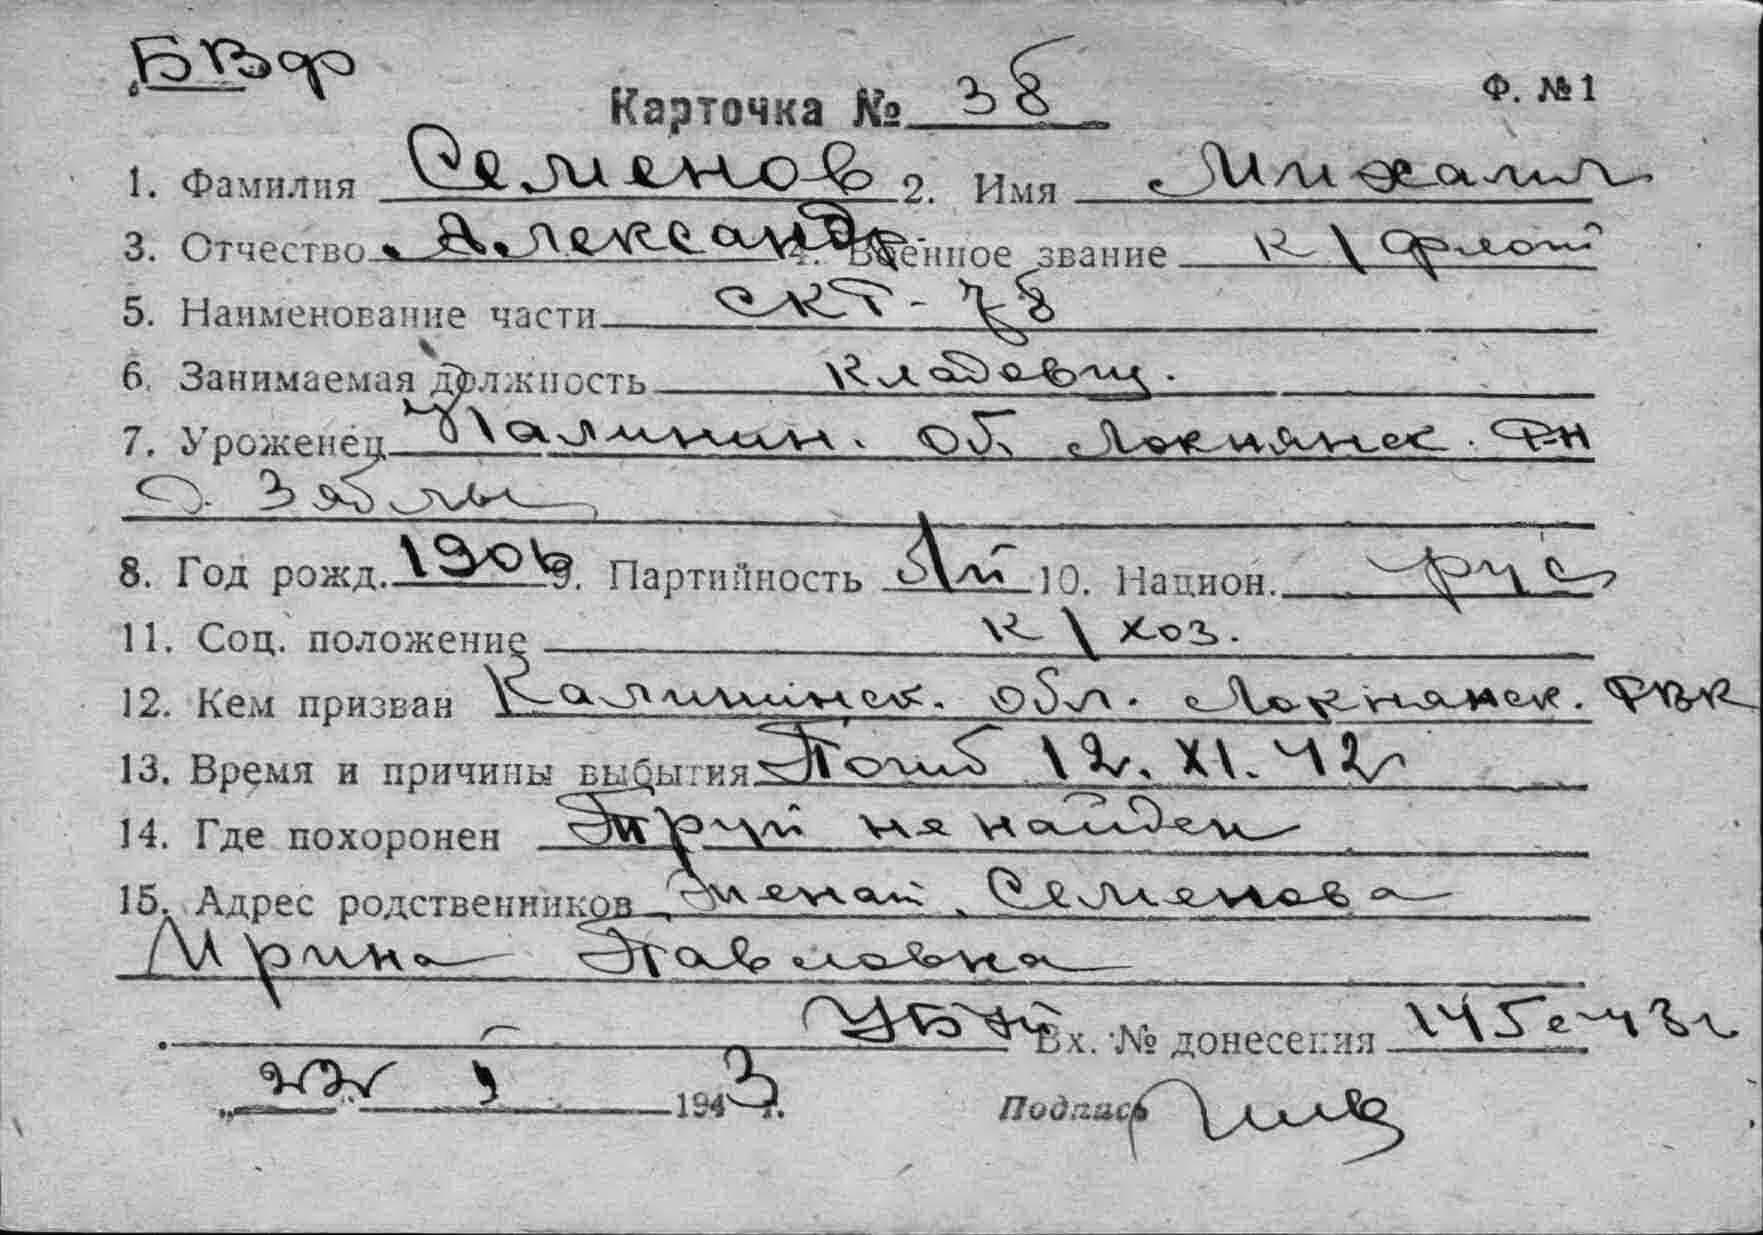 БВф
Карточка № 38 Ф. №1
1. Фамилия Семенов 2. Имя Михаил
3. Отчество Александр 4. Военное звание к\флот
5. Наименование части СКТ-78
6. Занимаемая должность кладовщ.
7. Уроженец Калинин. об. Локнянск. рн
д. Зяблы
8. Год рожд. 1906 9. Партийность 10. Национ. рус
11. Соц. положение к\хоз.
12. Кем призван Калининск. обл. Локнянск. РВК
13. Время и причины выбытия Погиб 12.XI.42г
14. Где похоронен Труп не найден
15. Адрес родственников Жена Семенова
Ирина Павловна
Вх. № донесения 145с-43г
"22" 1943 г. Подпись